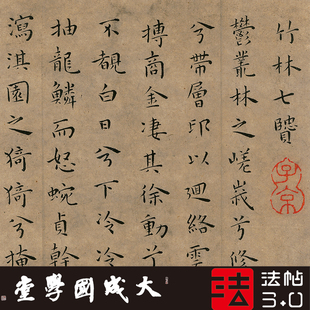 竹林七賢
鬱叢林之嵯峩兮修
兮帶層邱以迴絡雲
搏商金凄其徐動兮
不覩白日兮下泠泠
抽龍鱗而怒蜿貞幹
瀉淇園之猗猗兮掩
子京
大成國學堂
法
法帖
3.0